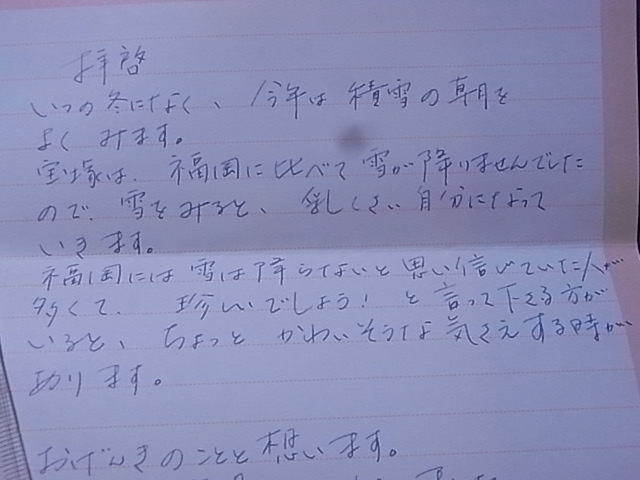 拝啓
いつの冬になく、今年は積雪の朝を
よくみます。
宝塚は、福岡に比べて雪が降りませんでした
ので、雪をみると、乳くさい自分になって
いきます。
福岡には雪は降らないと思い信じていた人が
多くて、珍しいでしょう！と言って下さる方が
いると、ちょっとかわいそうな気さえする時が
あります。
おげんきのことと想います。